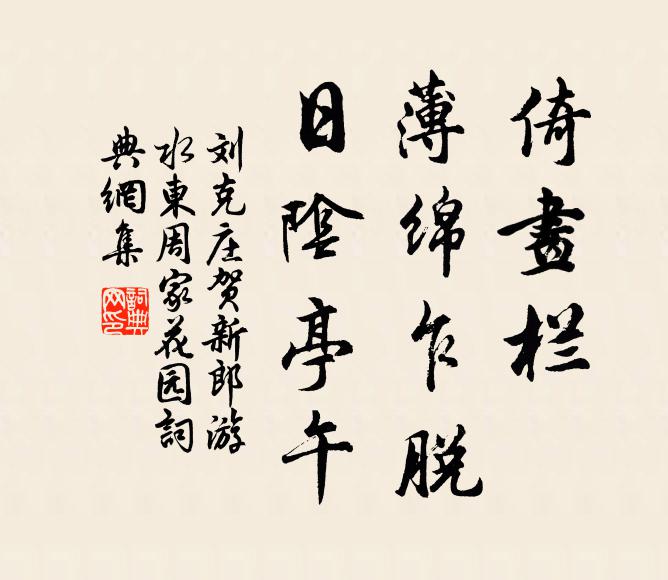 倚畫栏
薄绵乍脱
日陰亭午
刘克庄贺新郎游
水東周家花园詞
典網集
詞典网印